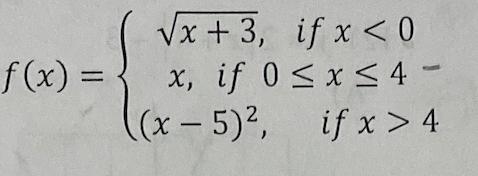 √(x + 3), if x < 0
f(x) = { x, if 0 ≤ x ≤ 4 -
(x − 5)², if x > 4